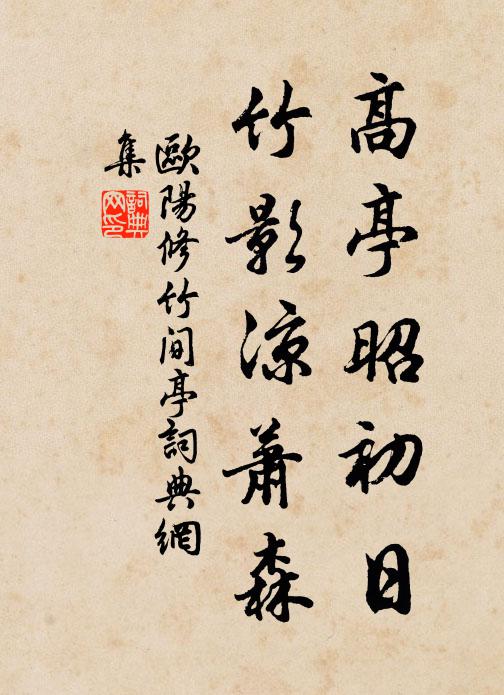 高亭昭初日
竹影涼蕭森
歐陽修竹间亭詞典網
集
詞典
网印